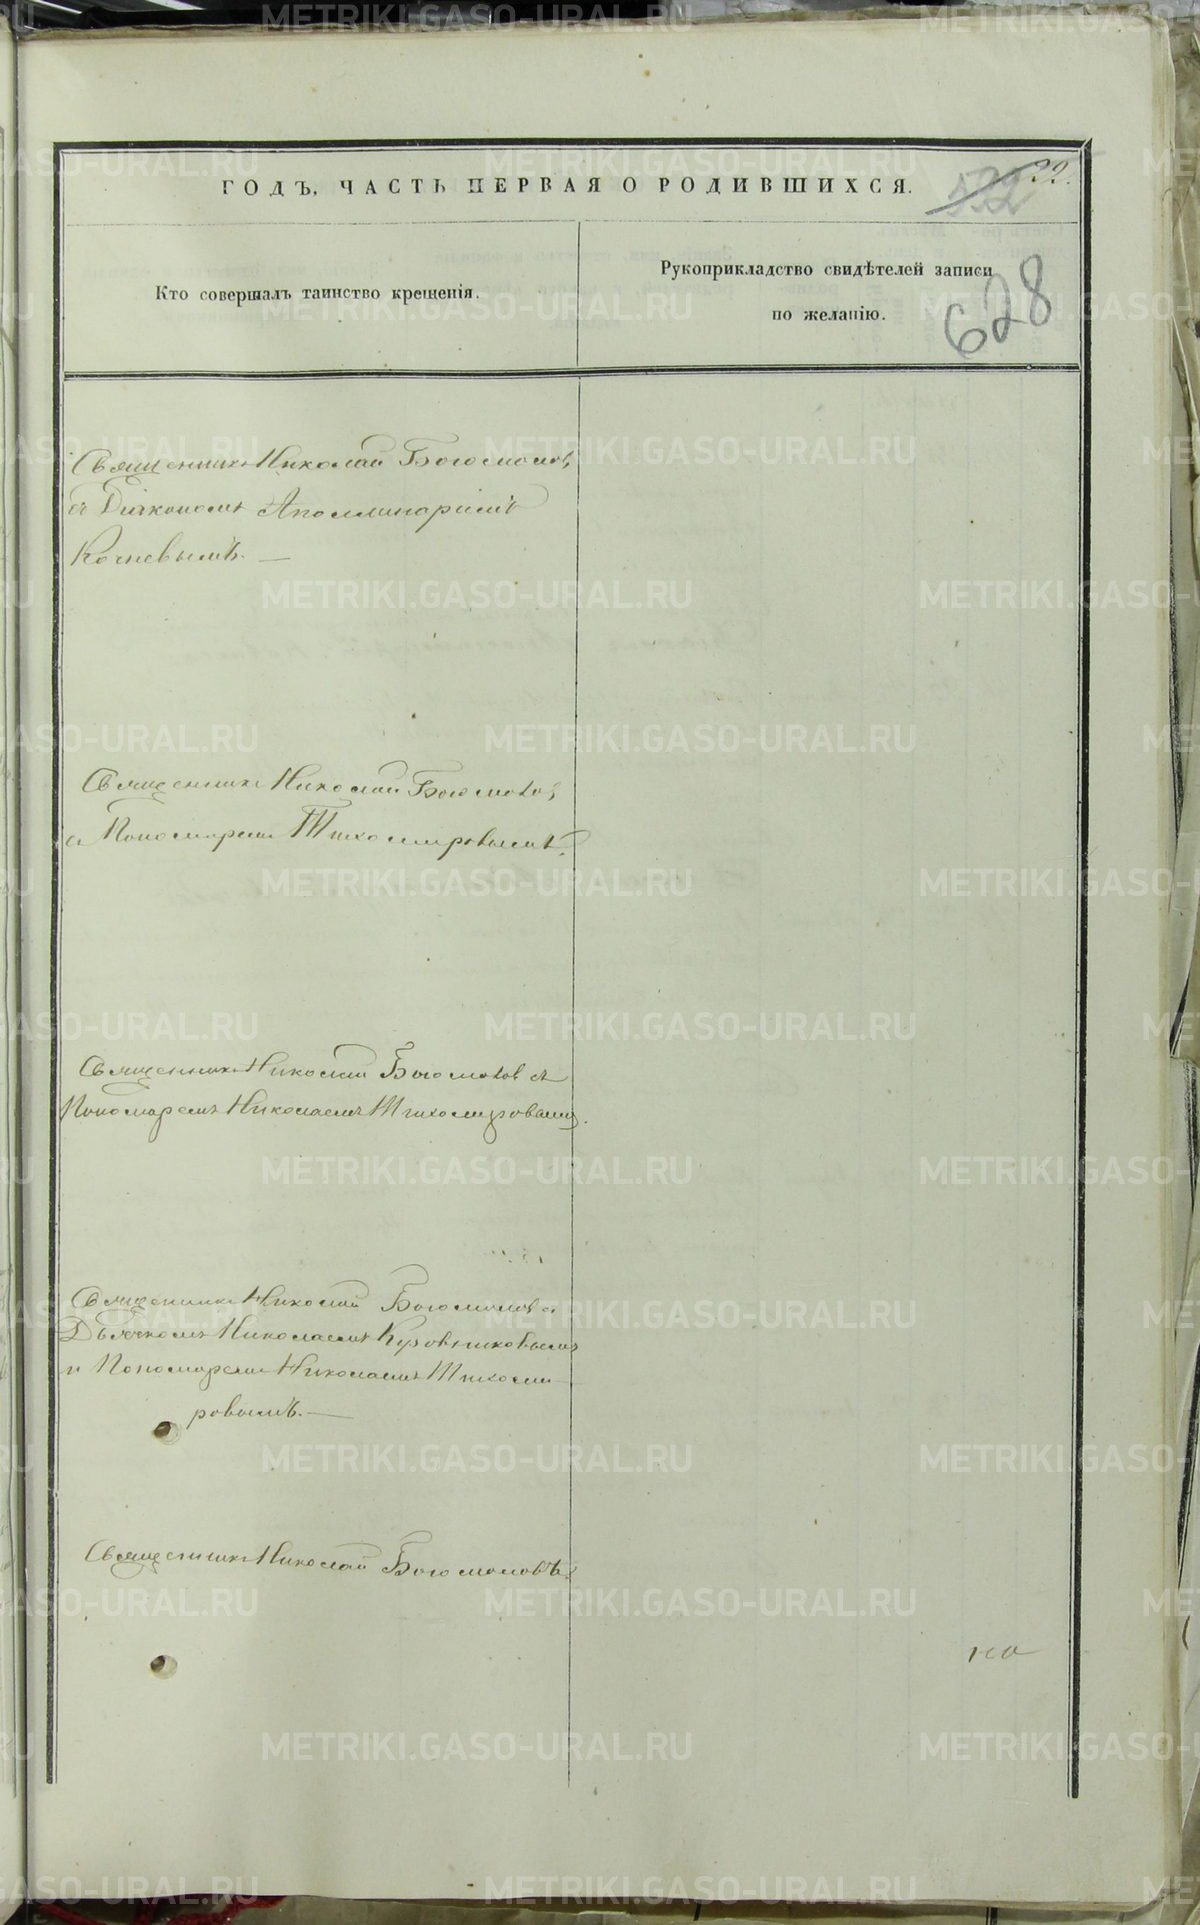 ГОДЪ, ЧАСТЬ ПЕРВАЯ О РОДИВШИХСЯ.
522
22.
Кто совершалъ таинство крещенія.
Рукоприкладство свидѣтелей записи
по желанію.
628
Священникъ Николай Богомолов,
съ Діакономъ Аполлинаріемъ
Кочневымъ.
Священникъ Николай Богомолов,
съ Пономаремъ Тихомировымъ.
Священникъ Николай Богомолов съ
Пономаремъ Николаемъ Тихомировымъ.
Священникъ Николай Богомолов съ
Дьячкомъ Николаемъ Кузовниковымъ
и Пономаремъ Николаемъ Тихоми
ровымъ.
Священникъ Николай Богомоловъ.
METRIKI.GASO-URAL.RU